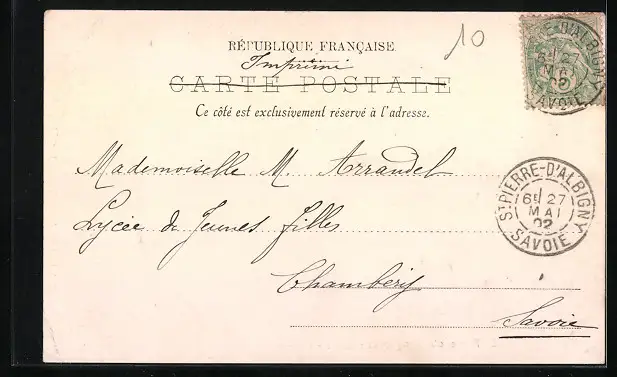 10
RÉPUBLIQUE FRANÇAISE
Imprimé
CARTE POSTALE
Ce côté est exclusivement réservé à l'adresse.
Mademoiselle M. Arrandel
Lycée de Jeunes filles
Chambéry
Savoie
ST PIERRE-D'ALBIGNY
6E 27
MAI
02
SAVOIE